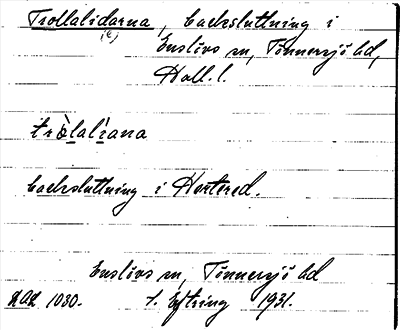 Trollalidarna, backsluttning i
(e)
Enslövs sn, Tönnersjö hd,
Hall. l.
tròlalìana
backsluttning i Hertered.
Enslövs sn, Tönnersjö hd
1030. 1931.